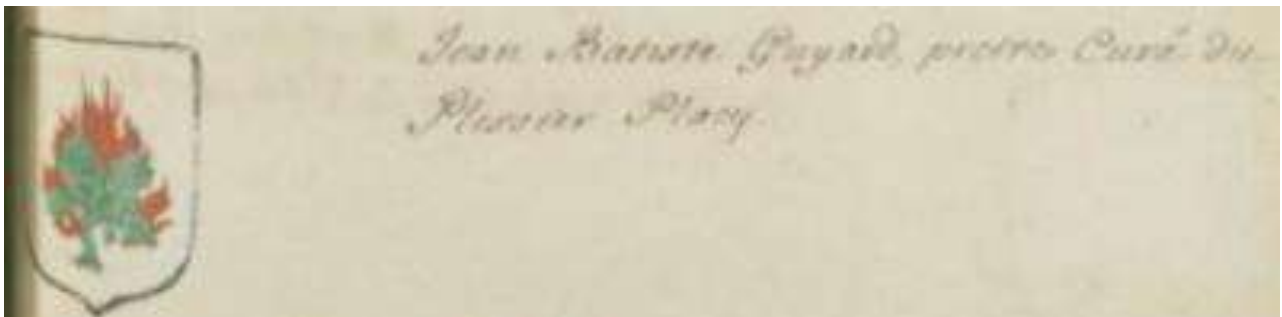 Jean Batiste Guyard, prêtre Curé du
Plessier Placy